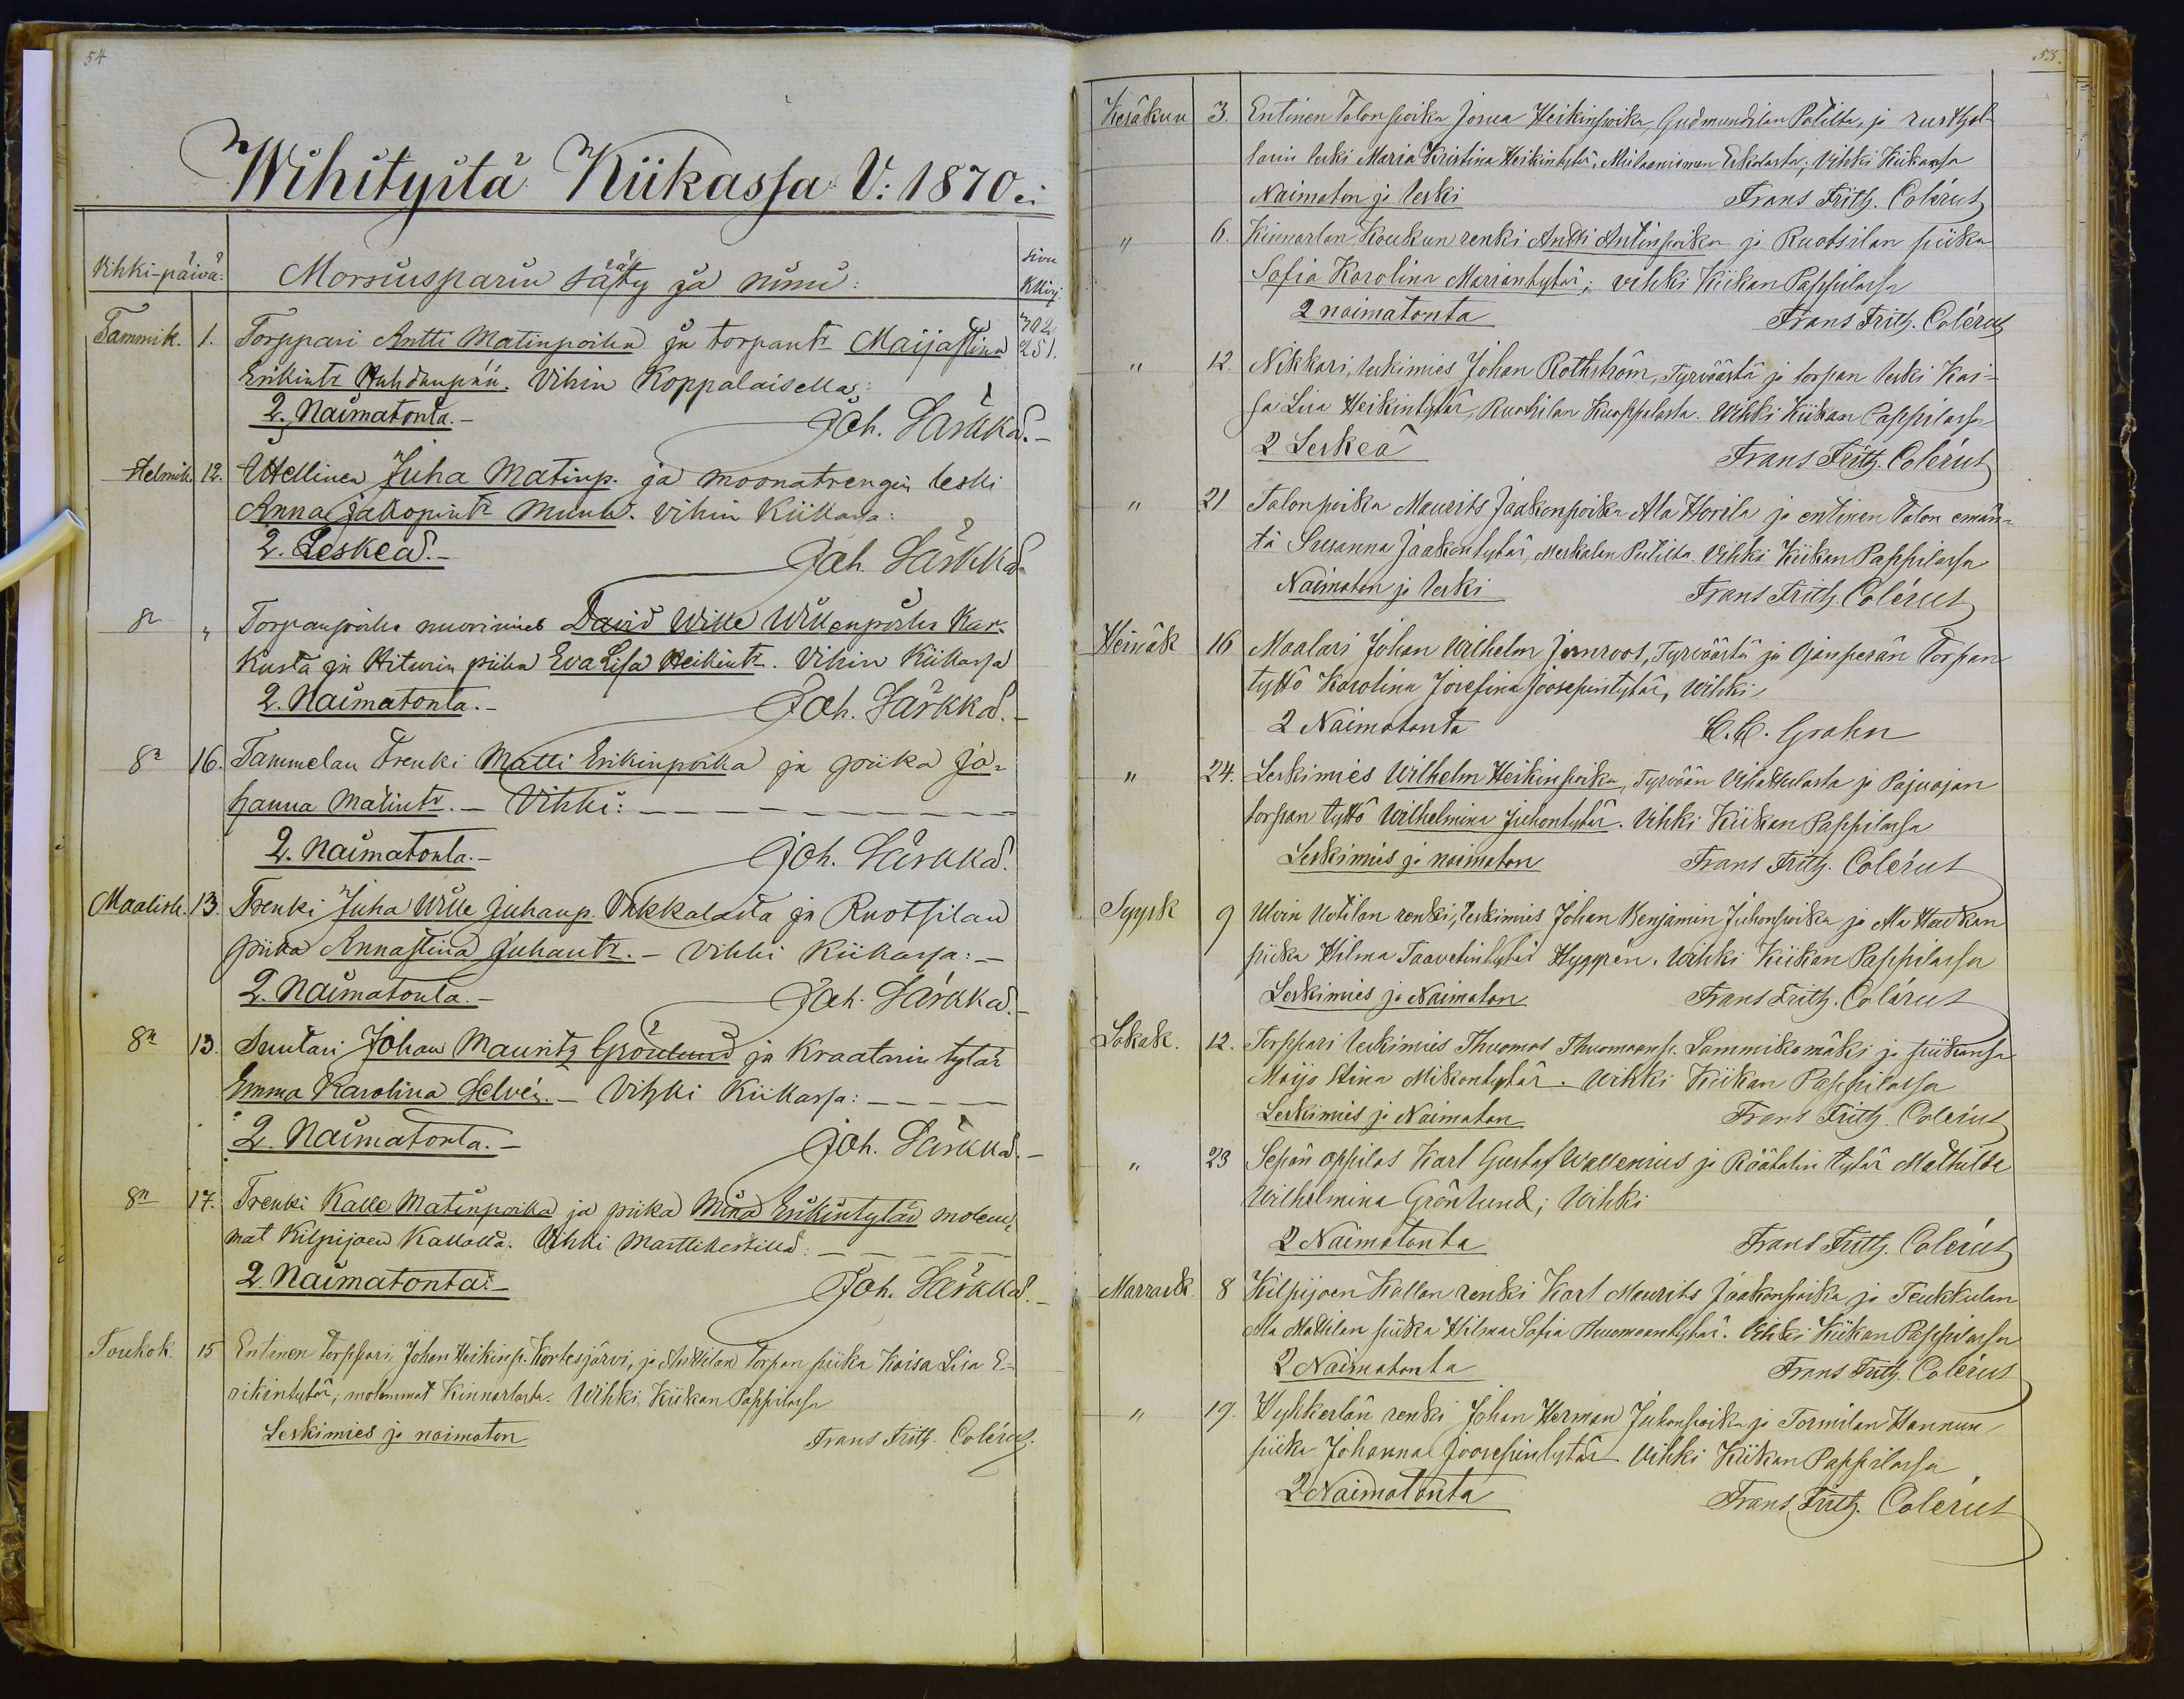 54
Wihityitä Kiikassa V: 1870:
Vihki-päivä: Morsiusparin sääty ja nimi: Sivu Kkirj.
Tammik. 1. Torppari Antti Matinpoika ja torpantr Maijastina 302 251.
Erikintr Vihin Koppalaisella:
2. Naimatonta.- Joh. Särkkä.-
Helmik. 12. Itellinen Juha Matinp. ja moonatrengin leski
Anna Jakopintr Vihin Kiikassa:
2. Leskeä.- Joh. Särkkä
8n " Torpanpoika nuorimies David Wille Willenpoika Kar-
kusta ja Hiturin piika Eva Lisa Heikintr. Vihin Kiikassa
2. Naimatonta.- Joh. Särkkä.-
8n 16. Tammelan Trenki Matti Erikinpoika ja piika Jo-
hanna Matintr. - Vihki: - - - - - -
2. Naimatonta.- Joh. Särkkä.
Maalisk. 13. Trenki Juha Wille Juhanp. ja Ruotsilan
piika Annastina Juhantr. - Vihki Kiikassa: -
2. Naimatonta.- Joh. Särkkä.-
8n 13. Suutari Johan Mauritz Grönlund ja Kraatarin tytär
Emma Karolina Selvén. - Vihki Kiikassa: - - - -
2. Naimatonta.- Joh. Särkkä.-
8n 17. Trenki Kalle Matinpoika ja piika Mina Erikintytär molem-
mat Kilpijoen Kallolla. Vihki Marttikestillä: - - - -
2. Naimatonta.- Joh. Särkkä.-
Toukok. 15 Entinen Torppari Johan Heikinp. Kortesjärvi, ja Anttilan torpan piika Kaisa Lisa E-
rikintytär; molemmat Kinnarlasta. Wihki Kiikan Pappilassa
Leskimies ja naimaton Frans Frith. Colérus.
55.
Kesäkuu 3. Entinen Talonpoika Josua Heikinpoika, Gudmundilan Patilta, ja rusthol-
larin leski Maria Kristina Heikintytär, Erkolasta; Vihki Kiikassa
Naimaton ja leski Frans Frith. Colérus
" 6. Kinnarlan Koukun renki Antti Antinpoika ja Ruotsilan piika
Sofia Karolina Mariantytär; vihki Kiikan Pappilassa
2 naimatonta Frans Frith. Colérus
" 12. Nikkari, leskimies Johan Rothström, Tyrväästä ja torpan leski Kai-
sa Lisa Heikintytär, Ruotsilan Kuoppalasta. Vihki Kiikan Pappilassa
2 Leskeä Frans Frith. Colérus
" 21 Talonpoika Maurits Jaakonpoika Ala Horila ja entinen Talon emän-
tä Susanna Jaakontytär, Meskalan Vihki Kiikan Pappilassa
Naimaton ja leski Frans Frith. Colérus
Heinäk 16 Maalari Johan Wilhelm Jernroos, Tyrväästä ja Ojanperän Torpan
tyttö Karolina Josefina Joosepintytär, Wihki
2 Naimatonta C. C. Grahn
" 24. Leskimies Wilhelm Heikinpoika, Tyrvään ja Pajuojan
torpan tyttö Wilhelmina Juhontytär. Vihki Kiikan Pappilassa
Leskimies ja naimaton Frans Frith. Colérus
Syysk 9 Ulvin Uotilan renki, leskimies Johan Benjamin Juhonpoika ja Ala Haukan
piika Hilma Taavetintytär Hyppén. Wihki Kiikan Pappilassa
Leskimies ja Naimaton Frans Frith. Colérus
Lokak. 12. Torppari leskimies Thuomas Thuomaanp. Sammikomäki ja piikansa
Maija Stina Mikontytär. Wihki Kiikan Pappilassa
Leskimies ja Naimaton Frans Frith. Colérus
" 23 Sepän oppilas Karl Gustaf Wallenius ja Räätalin tytär Mathilda
Wilhelmina Grönlund; Wihki
2 Naimatonta Frans Frith. Colérus
Marrask. 8 Kilpijoen Kallon renki Karl Maurits Jaakonpoika ja Teukkulan
Ala Mattilan piika Hilma Sofia Thuomaantytär. Vihki Kiikan Pappilassa
2 Naimatonta Frans Frith. Colérus
" 19. Hyhkerlän renki Johan Herman Juhonpoika ja Tormilan Hannun
piika Johanna Joosepintytär. Vihki Kiikan Pappilassa
2 Naimatonta Frans Frith. Colérus